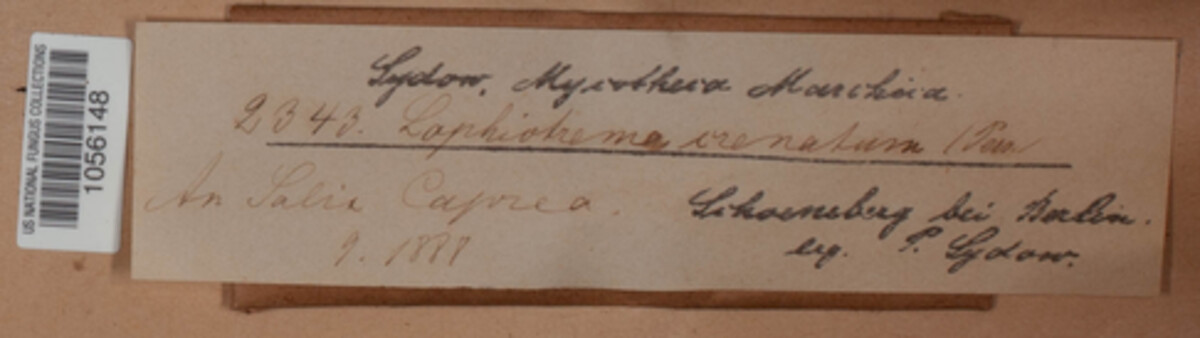 US NATIONAL FUNGUS COLLECTIONS
1056148
Sydow, Mycotheca Marchica.
2343. Lophiotrema crenatum (Pers.
An Salix Caprea.
9. 1888
Schoeneberg bei Berlin.
leg. P. Sydow.